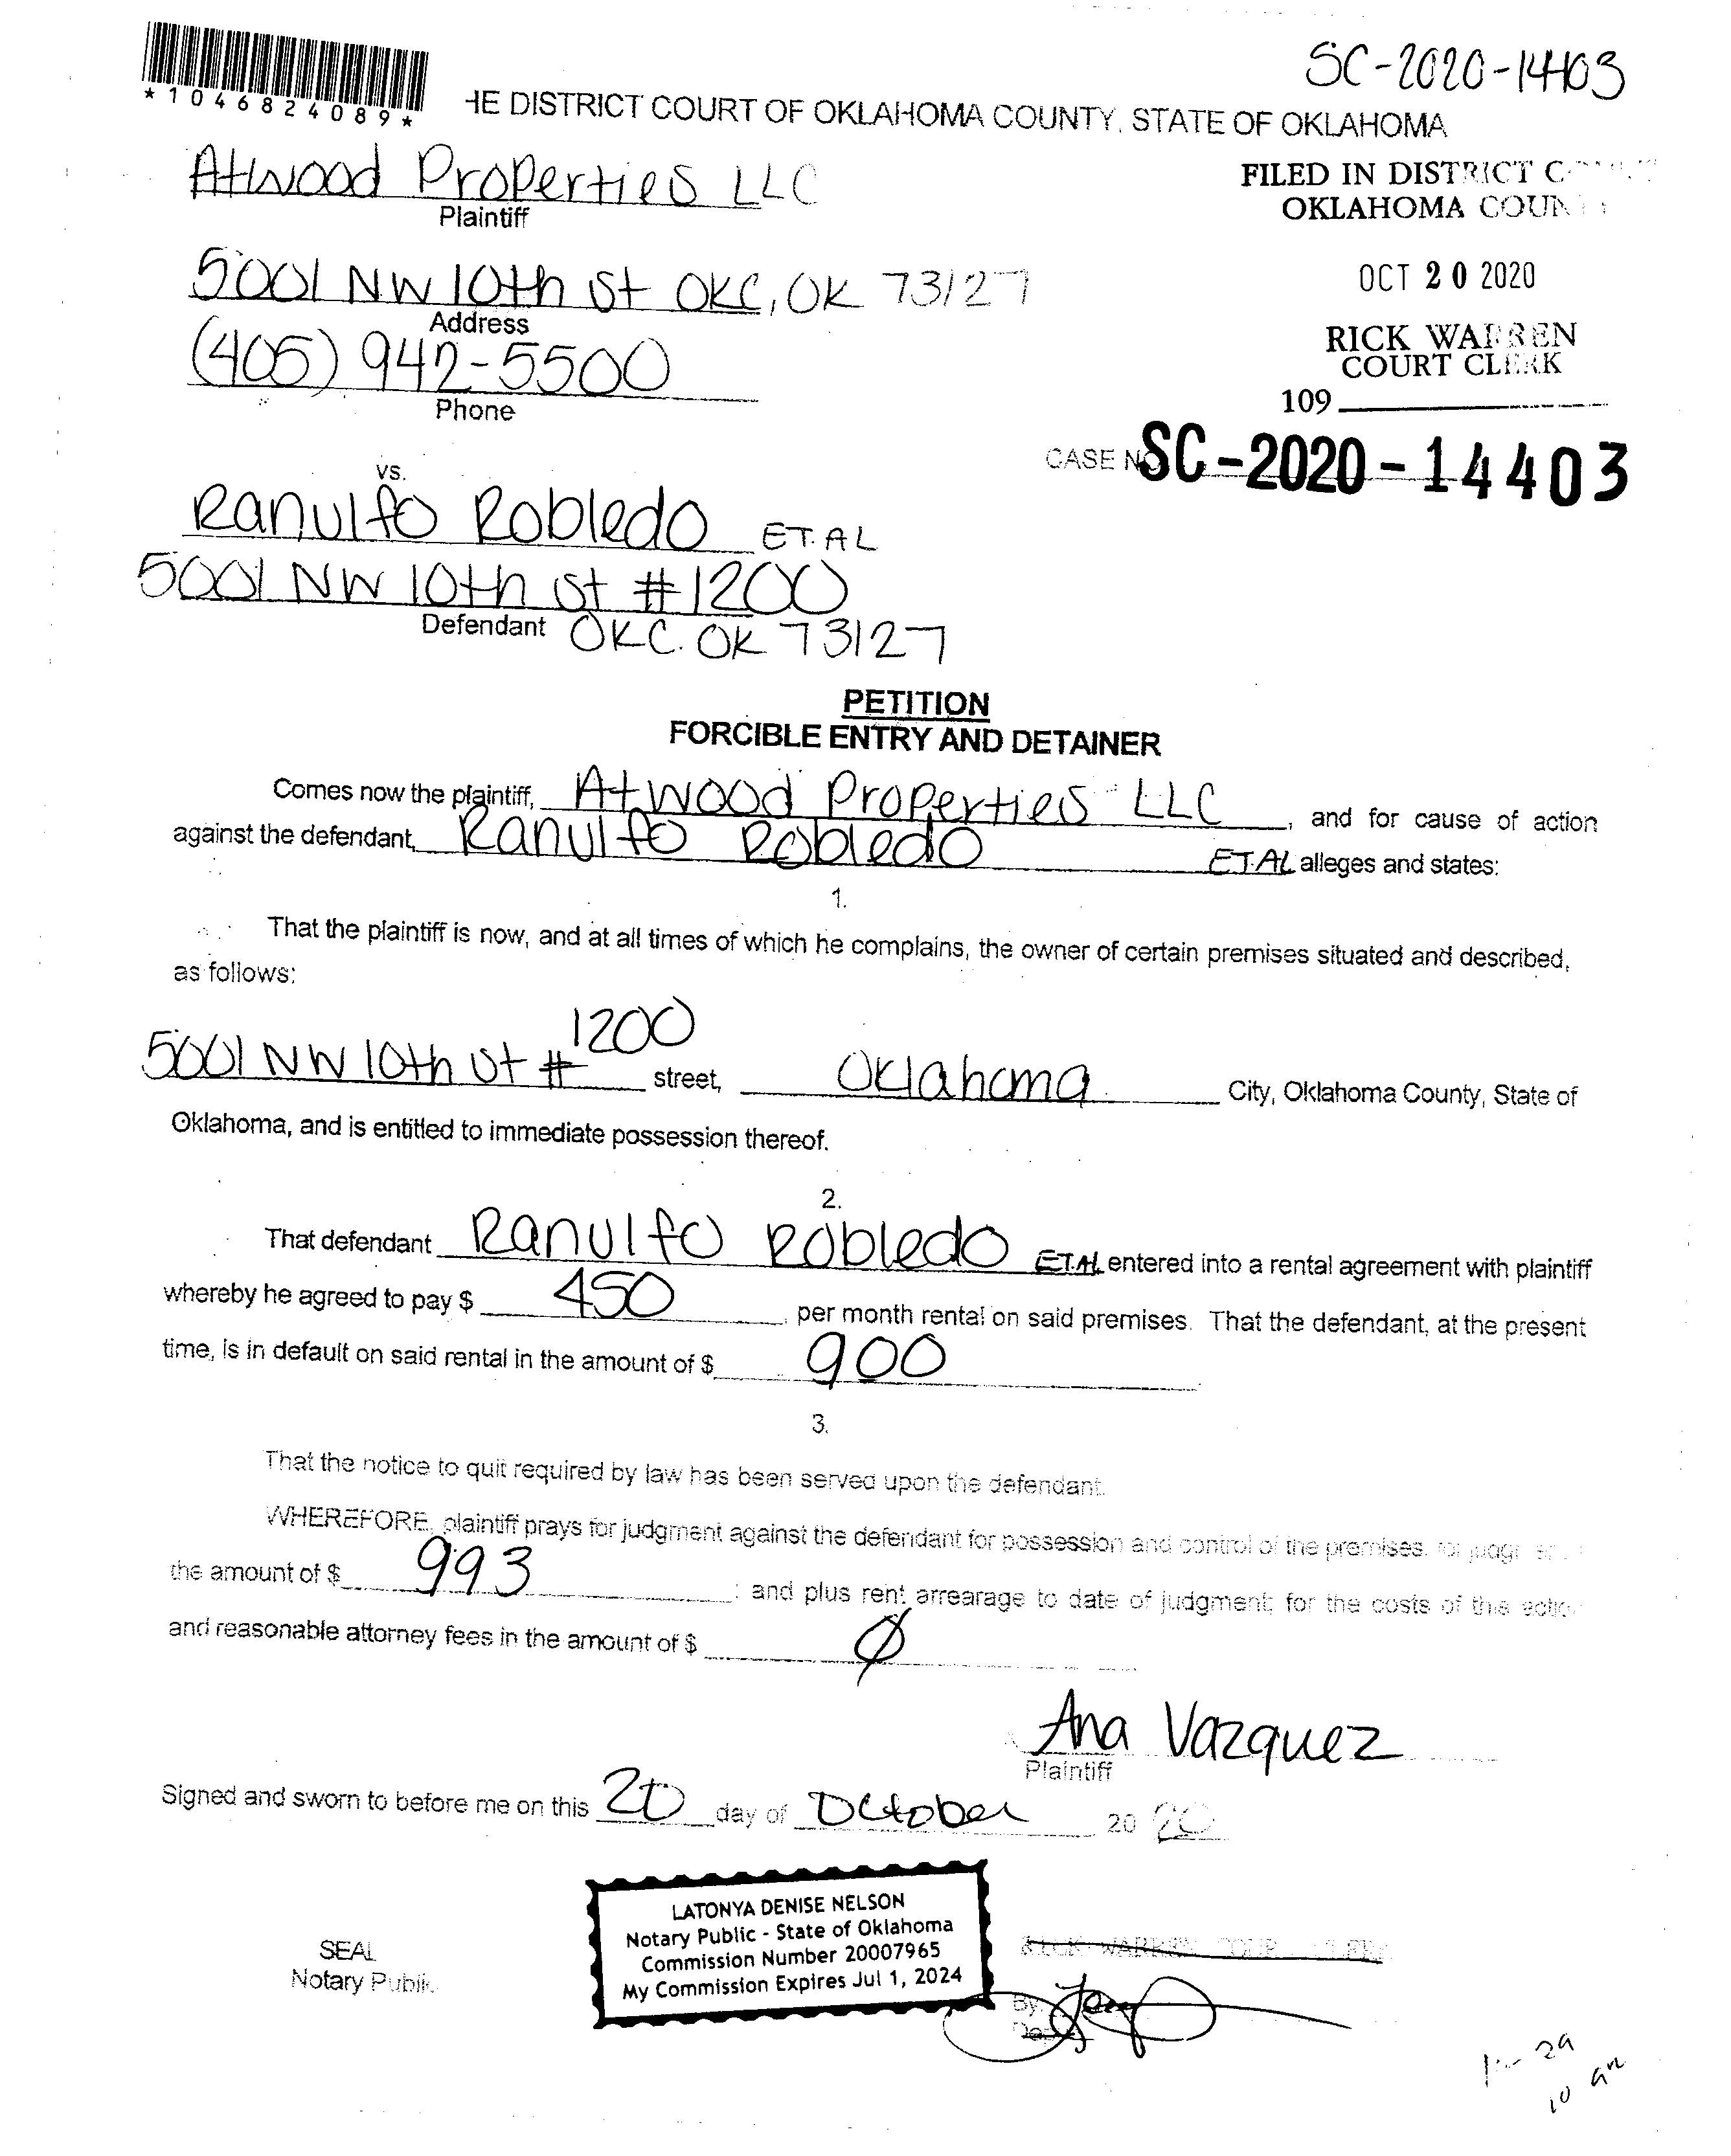 SC-2020-14403
*1046824089*
HE DISTRICT COURT OF OKLAHOMA COUNTY, STATE OF OKLAHOMA
Atwood Properties LLC
Plaintiff
FILED IN DISTRICT
OKLAHOMA COUN
5001 NW 10th St OKC, OK 73127
Address
OCT 20 2020
(405) 942-5500
Phone
RICK WARREN
COURT CLERK
109
CASE NO SC-2020-14403
vs.
Ranulfo Robledo ET.AL
5001 NW 10th St #1200
Defendant OKC. OK 73127
PETITION
FORCIBLE ENTRY AND DETAINER
Comes now the plaintiff, Atwood Properties LLC, and for cause of action
against the defendant, Ranulfo Robledo ET.AL alleges and states:
1.
That the plaintiff is now, and at all times of which he complains, the owner of certain premises situated and described,
as follows:
5001 NW 10th St # 1200 street, Oklahoma City, Oklahoma County, State of
Oklahoma, and is entitled to immediate possession thereof.
2.
That defendant Ranulfo Robledo ET.AL entered into a rental agreement with plaintiff
whereby he agreed to pay $ 450 per month rental on said premises. That the defendant, at the present
time, is in default on said rental in the amount of $ 900
3.
That the notice to quit required by law has been served upon the defendant.
WHEREFORE, plaintiff prays for judgment against the defendant for possession and control of the premises, for
the amount of $ 993 ; and plus rent arrearage to date of judgment; for the costs of this action
and reasonable attorney fees in the amount of $ Ø
Ana Vazquez
Plaintiff
Signed and sworn to before me on this 20 day of October 2020
LATONYA DENISE NELSON
Notary Public - State of Oklahoma
Commission Number 20007965
My Commission Expires Jul 1, 2024
SEAL
Notary Public
RICK WARREN
By
29
10 am